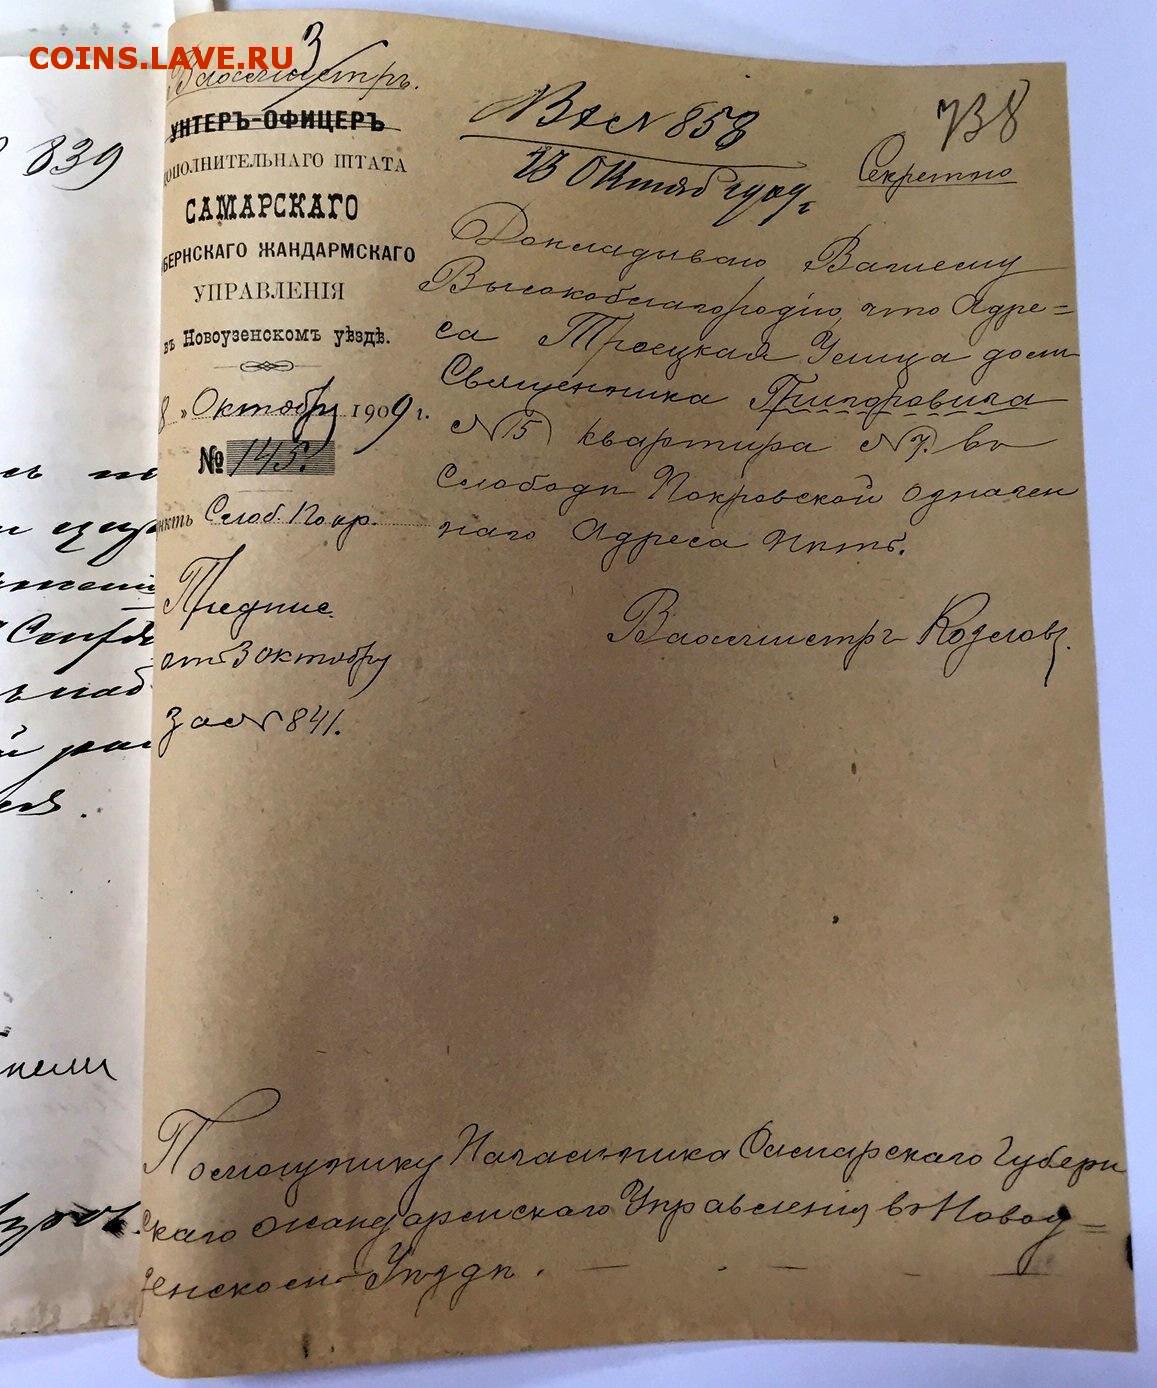 COINS.LAVE.RU
839
3
Вахмистръ.
УНТЕРЪ-ОФИЦЕРЪ
ДОПОЛНИТЕЛЬНАГО ШТАТА
САМАРСКАГО
БЕРНСКАГО ЖАНДАРМСКАГО
УПРАВЛЕНІЯ
въ Новоузенскомъ уѣздѣ.
8 „ Октября 1909 г.
№ 145.
нктъ Слоб. Покр.
Предпис.
от 3 октября
за № 841.
Вх № 858
13 Октяб 1909 г
738
Секретно
Докладываю Вашему
Высокоблагородію, что Адре=
са Троецкая Улица домъ
Священника
№ 15 квартира № 7. въ
Слободѣ Покровской означен
наго Адреса нѣтъ.
Вахмистръ Козловъ.
Помощнику Начальника Самарскаго Губерн
скаго Жандармскаго Управленія въ Новоу=
зенскомъ Уѣздѣ.